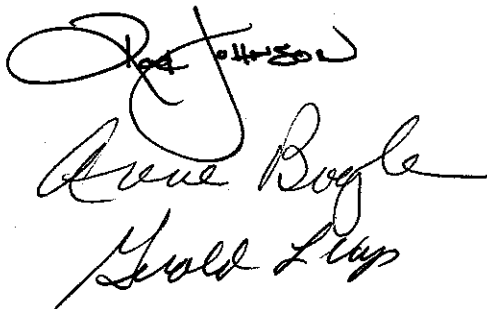 Rod Johnson
Anne Bogle
Gerald